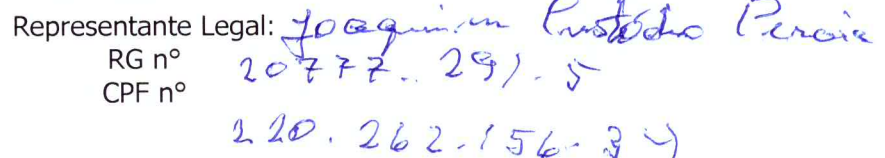 Representante Legal: Joaquim Custódio Pereira
RG nº 20777.291-5
CPF nº
220.262.156-34